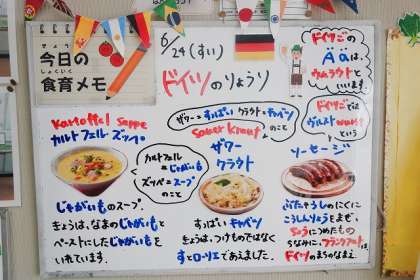 きょう
今日の
しょくいく
食育メモ
6/24(すい)
ドイツのりょうり
ドイツごの
Ääは、
ウムラウトと
いいます。
Kartoffel Suppe
カルトフェル・ズッペ
カルトフェル
=じゃがいも
ズッペ=スープ
のこと
じゃがいものスープ。
きょうは、なまのじゃがいもと
ペーストにしたじゃがいもを
いれています。
ザワー=すっぱい クラウト=キャベツ
のこと
Sauer Kraut
ザワー
クラウト
すっぱいキャベツ
きょうは、つけものではなく
すとローリエであえました。
ドイツでは
ヴルストWurst
という
ソーセージ
ぶたやうしのにくに
こうしんりょうをまぜ、
ちょうにつめたもの
ちなみに、フランクフルトは、
ドイツのまちのなまえ。